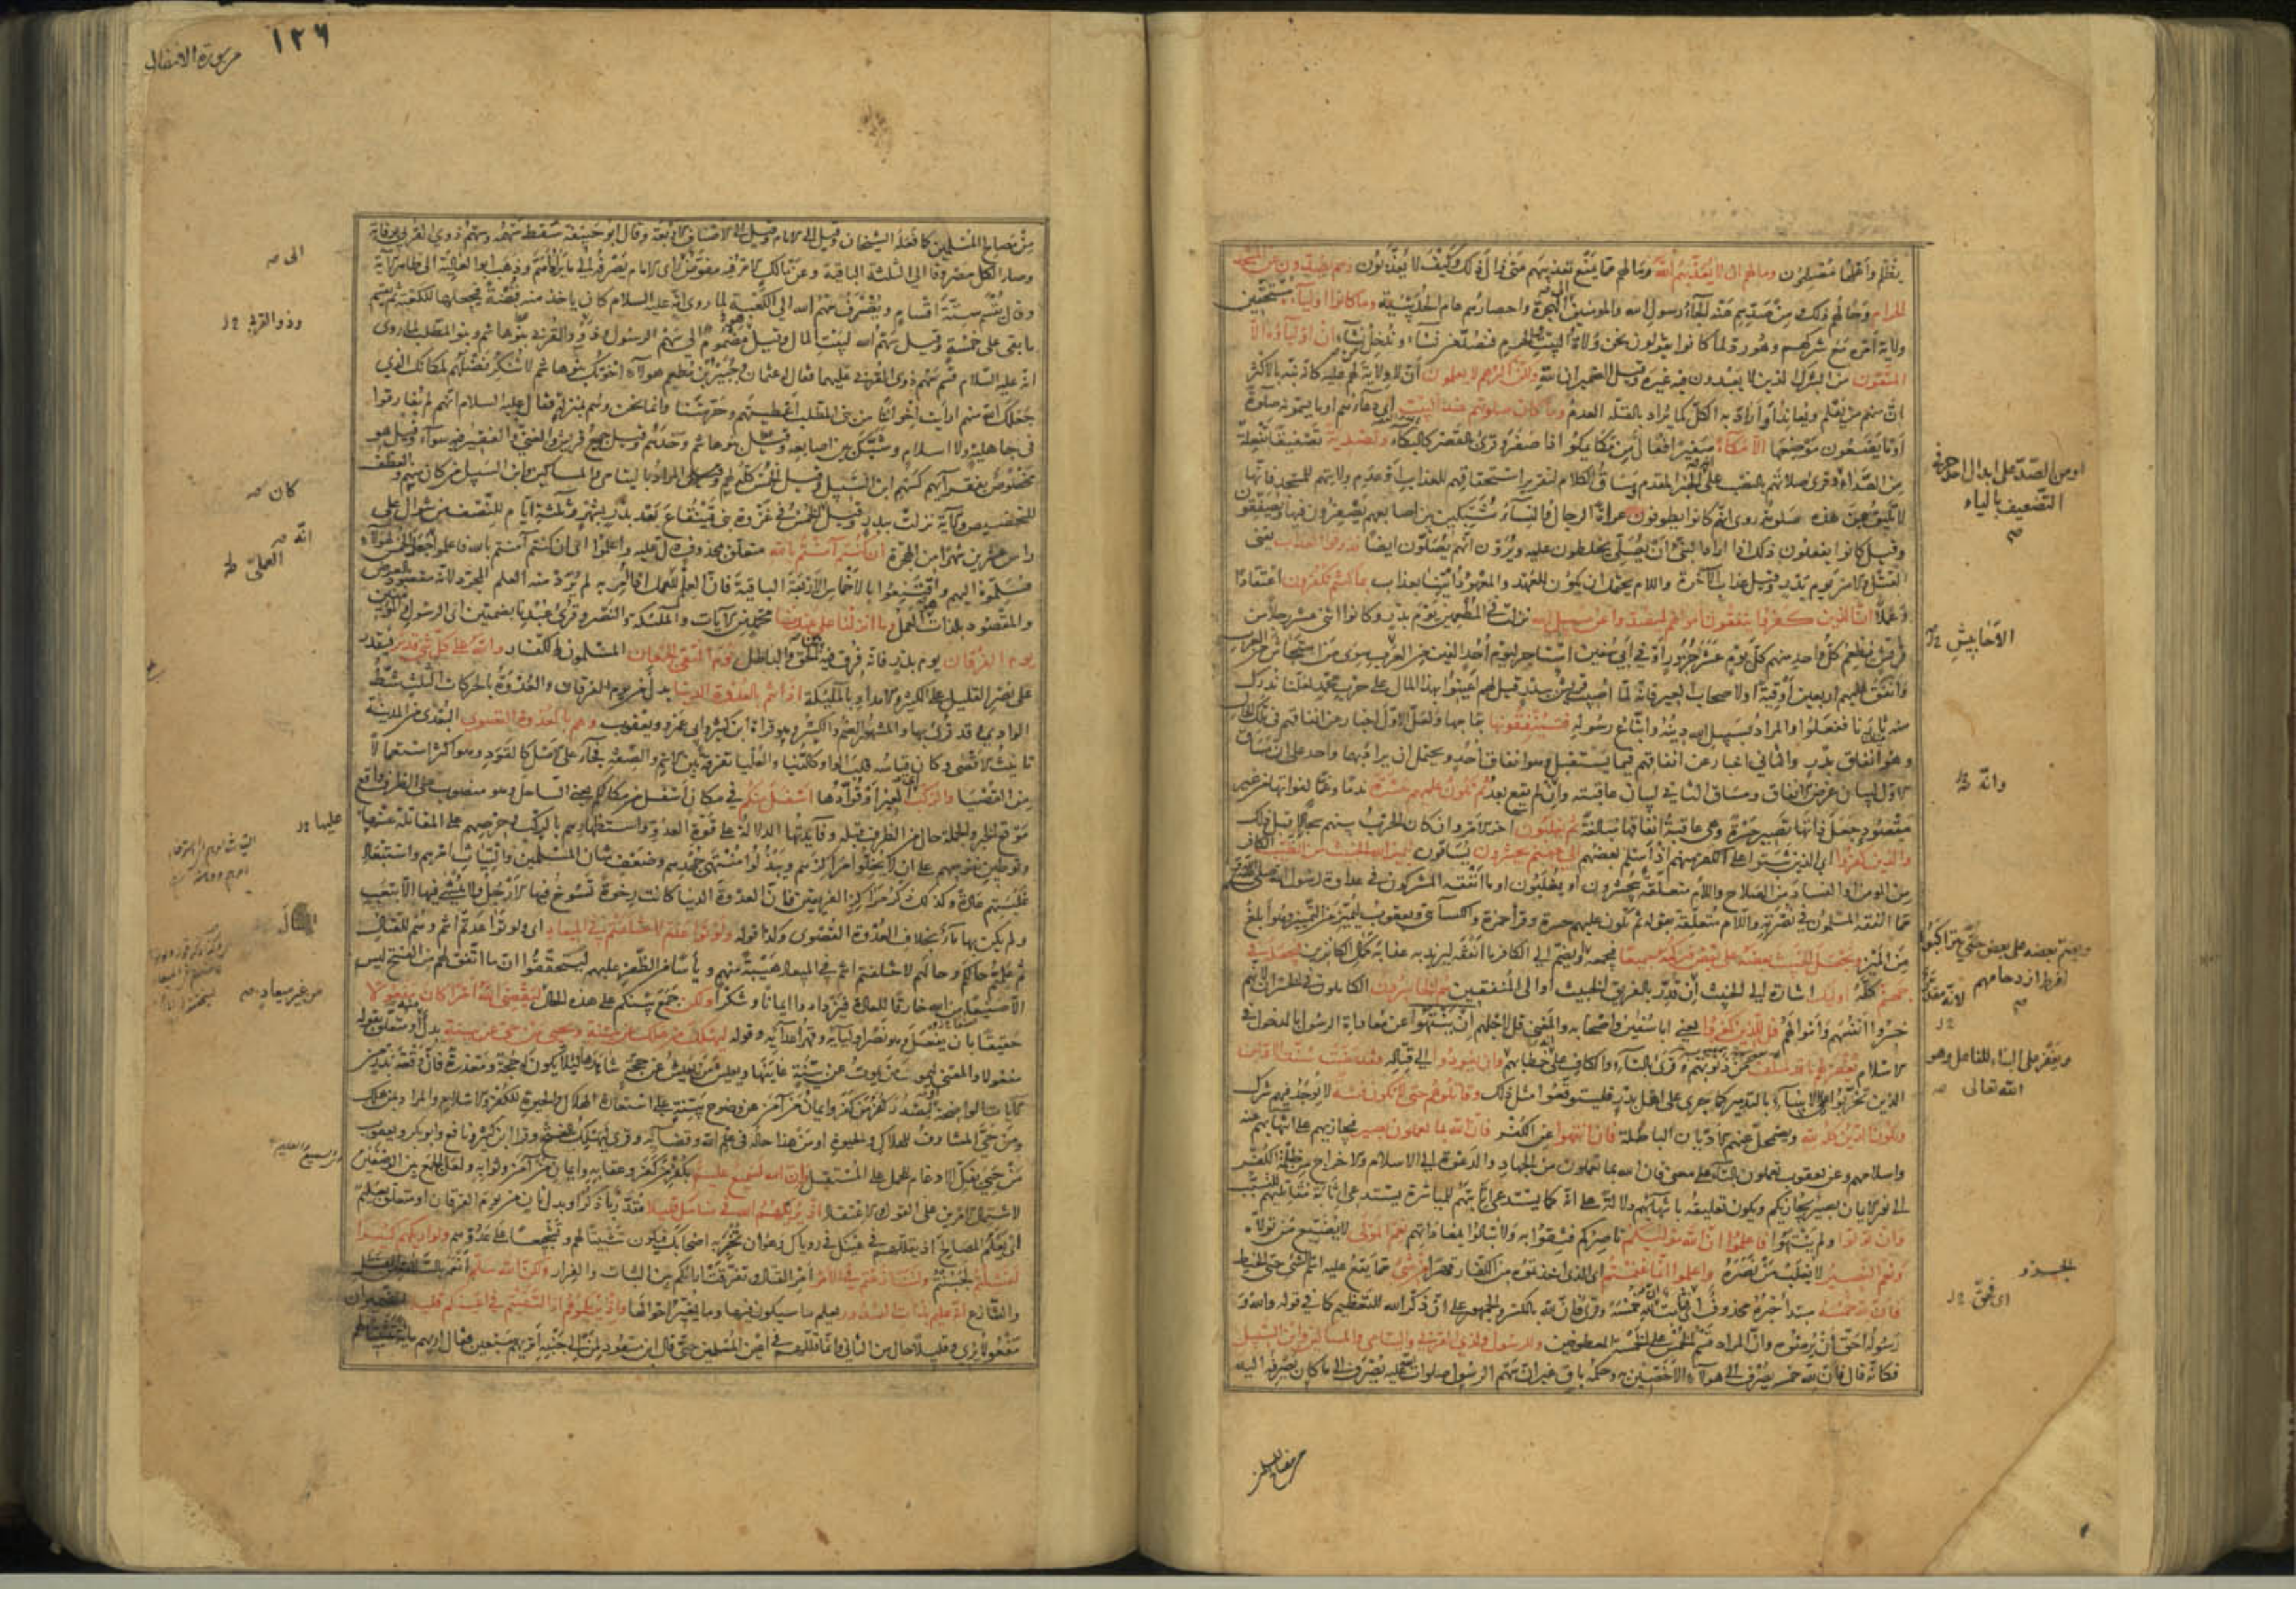 يظلم وأهلها مصلحون وما لهم ألا يعذبهم الله وما لهم مما يمنع تعذيبهم متى زال ذلك وكيف لا يعذبون وهم يصدون عن المسجد
الحرام وحالهم ذلك ومن صدهم عنه إلجاء رسول الله والمؤمنين إلى الهجرة وإحصارهم عام الحديبية وما كانوا أولياءه مستحقين
ولاية أمره مع شركهم وهو رد لما كانوا يقولون نحن ولاة البيت والحرم فنصد من نشاء وندخل من نشاء إن أولياؤه إلا
المتقون من الشرك الذين لا يعبدون فيه غيره وقيل الضميران لله ولكن أكثرهم لا يعلمون أن لا ولاية لهم عليه كأنه نبه بالأكثر
أن منهم من يعلم ويعاند أو أراد به الكل كما يراد بالقلة العدم وما كان صلوتهم عند البيت أي دعاؤهم أو ما يسمونه صلوة
أو ما يضعون موضعها إلا مكاء صفيرا فعال من مكا يمكو إذا صفر وقرئ بالقصر كالبكا وتصدية تصفيقا تفعلة
من الصداء وقرئ صلاتهم بالنصب على أنه الخبر المقدم ومساق الكلام لتقرير استحقاقهم للعذاب أو عدم ولايتهم للمسجد فإنها
لا تليق بمن هذه صلوته روي أنهم كانوا يطوفون عراة الرجال والنساء مشبكين بين أصابعهم يصفرون فيها ويصفقون
وقيل كانوا يفعلون ذلك إذا أراد النبي أن يصلي يخلطون عليه ويرون أنهم يصلون أيضا فذوقوا العذاب يعني
القتل والأسر يوم بدر وقيل عذاب الآخرة واللام يحتمل أن يكون للعهد والمعهود ائتنا بعذاب بما كنتم تكفرون اعتقادا
وعملا إن الذين كفروا ينفقون أموالهم ليصدوا عن سبيل الله نزلت في المطعمين يوم بدر وكانوا اثني عشر رجلا من
قريش يطعم كل واحد منهم كل يوم عشر جزر أو في أبي سفيان استأجر ليوم أحد ألفين من العرب سوى من استجاش من العرب
وأنفق عليهم أربعين أوقية أو لأصحاب العير فإنه لما أصيب قريش ببدر قيل لهم أعينوا بهذا المال على حرب محمد لعلنا ندرك
منه ثارنا ففعلوا والمراد بسبيل الله دينه واتباع رسوله فسينفقونها بتمامها ولعل الأول إخبار عن إنفاقهم في تلك الحال
وهو إنفاق بدر والثاني إخبار عن إنفاقهم فيما يستقبل وهو إنفاق أحد ويحتمل أن يراد بهما واحد على أن مساق
الأول لبيان غرض الإنفاق ومساق الثاني لبيان عاقبته وإن لم يقع بعد ثم تكون عليهم حسرة ندما وغما لفواتها من غير
مقصود جعل ذاتها تصير حسرة وهي عاقبة إنفاقها مبالغة ثم يغلبون آخر الأمر وإن كان الحرب بينهم سجالا قبل ذلك
والذين كفروا أي الذين ثبتوا على الكفر منهم إذ أسلم بعضهم إلى جهنم يحشرون يساقون ليميز الله الخبيث من الطيب الكافر
من المؤمن أو الفساد من الصلاح واللام متعلقة بيحشرون أو يغلبون أو ما أنفقه المشركون في عداوة رسول الله صلى الله عليه وسلم
مما أنفقه المسلمون في نصرته واللام متعلقة بقوله ثم تكون عليهم حسرة وقرأ حمزة والكسائي ويعقوب ليميز من التمييز وهو أبلغ
من الميز ويجعل الخبيث بعضه على بعض فيركمه جميعا فيجمعه أو يضم إلى الكافر ما أنفقه ليزيد به عذابه كمال الكانزين فيجعله في
جهنم كله أولئك إشارة إلى الخبيث لأنه مقدر بالفريق الخبيث أو إلى المنفقين هم الخاسرون الكاملون في الخسران لأنهم
خسروا أنفسهم وأموالهم قل للذين كفروا يعني أبا سفيان وأصحابه والمعنى قل لأجلهم إن ينتهوا عن معاداة الرسول بالدخول في
الإسلام يغفر لهم ما قد سلف من ذنوبهم وقرئ بالتاء والكاف على خطابهم وإن يعودوا إلى قتاله فقد مضت سنة الأولين
الذين تحزبوا على الأنبياء بالتدمير كما جرى على أهل بدر فليتوقعوا مثل ذلك وقاتلوهم حتى لا تكون فتنة لا يوجد فيهم شرك
ويكون الدين كله لله ويضمحل عنهم الأديان الباطلة فإن انتهوا عن الكفر فإن الله بما يعملون بصير فيجازيهم على انتهائهم عنه
وإسلامهم وعن يعقوب تعملون بالتاء على معنى فإن الله بما تعملون من الجهاد والدعوة إلى الإسلام والإخراج من ظلمة الكفر
إلى نور الإيمان بصير يجازيكم ويكون تعليقه بانتهائهم دلالة على أنه كما يستدعي إثابتهم للمباشرة يستدعي إثابة مقاتليهم للتسبب
وإن تولوا ولم ينتهوا فاعلموا أن الله موليكم ناصركم فثقوا به ولا تبالوا بمعاداتهم نعم المولى لا يضيع من تولاه
ونعم النصير لا يغلب من نصره واعلموا أنما غنمتم أي الذي أخذتموه من الكفار قهرا من شيء مما يقع عليه اسم الشيء حتى الخيط
فأن لله خمسه مبتدأ خبره محذوف أي فثابت أن لله خمسه وقرئ فإن لله بالكسر والجمهور على أن ذكر الله للتعظيم كما في قوله والله و
رسوله أحق أن يرضوه وأن المراد قسم الخمس على الخمسة المعطوفين وللرسول ولذي القربى واليتامى والمساكين وابن السبيل
فكأنه قال فأن لله خمسه يصرف إلى هؤلاء الأخصين به وحكمه باق غير أن سهم الرسول صلوات الله عليه يصرف إلى ما كان يصرفه إليه
أو من الصد على إبدال أحد حرفي
التضعيف بالياء
الأحابيش
وأنه
لأنه مقدر
الله تعالى
من مصالح المسلمين
١٢٦
سورة الأنفال
من مصالح المسلمين كما فعله الشيخان وقيل إلى الإمام وقيل إلى الأصناف الأربعة وقال أبو حنيفة سقط سهمه وسهم ذوي القربى بوفاته
وصار الكل مصروفا إلى الثلثة الباقية وعن مالك الأمر فيه مفوض إلى رأي الإمام يصرفه إلى ما يراه أهم وذهب أبو العالية إلى ظاهر الآية
وقال يقسم ستة أقسام ويصرف سهم الله إلى الكعبة لما روي أنه عليه السلام كان يأخذ منه قبضة فيجعلها للكعبة ثم يقسم
ما بقي على خمسة وقيل سهم الله لبيت المال وقيل مضموم إلى سهم الرسول وذوو القربى بنو هاشم وبنو المطلب لما روي
أنه عليه السلام قسم سهم ذوي القربى عليهما فقال له عثمان وجبير بن مطعم هؤلاء إخوتك بنو هاشم لا ننكر فضلهم لمكانك الذي
جعلك الله منهم أرأيت إخواننا من بني المطلب أعطيتهم وحرمتنا وإنما نحن وهم بمنزلة فقال عليه السلام إنهم لم يفارقونا
في جاهلية ولا إسلام وشبك بين أصابعه وقيل بنو هاشم وحدهم وقيل جميع قريش والغني والفقير فيه سواء وقيل هو
مخصوص بفقرائهم كسهم ابن السبيل وقيل الخمس كله لهم والمراد باليتامى والمساكين وابن السبيل من كان منهم والعطف
للتخصيص والآية نزلت ببدر وقيل الخمس في غزوة بني قينقاع بعد بدر بشهر وثلثة أيام للنصف من شوال على
رأس عشرين شهرا من الهجرة إن كنتم آمنتم بالله متعلق بمحذوف دل عليه واعلموا أي إن كنتم آمنتم بالله فاعلموا أنه جعل الخمس لهؤلاء
فسلموه إليهم واقتنعوا بالأخماس الأربعة الباقية فإن العلم العملي إذا أمر به لم يرد منه العلم المجرد لأنه مقصود بالعرض
والمقصود بالذات العمل وما أنزلنا على عبدنا محمد من الآيات والملئكة والنصر وقرئ عبدنا بضمتين أي الرسول والمؤمنين
يوم الفرقان يوم بدر فإنه فرق فيه بين الحق والباطل يوم التقى الجمعان المسلمون والكفار والله على كل شيء قدير فيقدر
على نصر القليل على الكثير والإمداد بالملئكة إذ أنتم بالعدوة الدنيا بدل من يوم الفرقان والعدوة بالحركات الثلث شط
الوادي وقد قرئ بها والمشهور الضم والكسر وهو قراءة ابن كثير وأبي عمرو ويعقوب وهم بالعدوة القصوى البعدى من المدينة
تأنيث الأقصى وكان قياسه قلب الواو كالدنيا والعليا تفرقة بين الاسم والصفة فجاء على الأصل كالقود وهو أكثر استعمالا
من القصيا والركب أي العير أو قوادها أسفل منكم في مكان أسفل من مكانكم يعني الساحل وهو منصوب على الظرف واقع
موقع الخبر والجملة حال من الظرف قبله وفائدتها الدلالة على قوة العدو واستظهارهم بالركب وحرصهم على المقاتلة عنها
وتوطين نفوسهم على أن لا يخلوا مراكزهم ويبذلوا منتهى جهدهم وضعف شأن المسلمين والتياث أمرهم واستبعاد
غلبتهم عادة وكذا ذكر مراكز الفريقين فإن العدوة الدنيا كانت رخوة تسوخ فيها الأرجل ولا يمشى فيها إلا بتعب
ولم يكن بها ماء بخلاف العدوة القصوى وكذا قوله ولو تواعدتم لاختلفتم في الميعاد أي ولو تواعدتم أنتم وهم للقتال
ثم علمتم حالكم وحالهم لاختلفتم أنتم في الميعاد هيبة منهم ويأسا من الظفر عليهم ليتحققوا أن ما اتفق لهم من الفتح ليس
إلا صنيعا من الله خارقا للعادة فيزدادوا إيمانا وشكرا ولكن جمع بينكم على هذه الحال ليقضي الله أمرا كان مفعولا
حقيقا بأن يفعل وهو نصر أوليائه وقهر أعدائه وقوله ليهلك من هلك عن بينة ويحيى من حي عن بينة بدل منه أو متعلق بقوله
مفعولا والمعنى ليموت من يموت عن بينة عاينها ويعيش من يعيش عن حجة شاهدها لئلا يكون له حجة ومعذرة فإن وقعة بدر من
الآيات الواضحة أو ليصدر كفر من كفر وإيمان من آمن عن وضوح بينة على استعارة الهلاك والحيوة للكفر والإسلام والمراد بمن هلك
ومن حي المشارف للهلاك والحيوة أو من هذا حاله في علم الله وقضائه وقرئ ليهلك بالفتح وقرأ ابن كثير ونافع وأبو بكر ويعقوب
من حيي بفك الإدغام للحمل على المستقبل وإن الله لسميع عليم بكفر من كفر وعقابه وإيمان من آمن وثوابه ولعل الجمع بين الوصفين
لاشتمال الأمرين على القول والاعتقاد إذ يريكهم الله في منامك قليلا مقدر باذكر أو بدل ثان من يوم الفرقان أو متعلق بعليم
أي يعلم المصالح إذ يقللهم في عينك في رؤياك وهو أن تخبر به أصحابك فيكون تثبيتا لهم وتشجيعا على عدوهم ولو أراكهم كثيرا
لفشلتم لجبنتم ولتنازعتم في الأمر أمر القتال وتفرقت آراؤكم بين الثبات والفرار ولكن الله سلم أنعم بالسلامة من الفشل
والتنازع إنه عليم بذات الصدور يعلم ما سيكون فيها وما يغير أحوالها وإذ يريكموهم إذ التقيتم في أعينكم قليلا الضميران
مفعولا يرى وقليلا حال من الثاني وإنما قللهم في أعين المسلمين حتى قال ابن مسعود لمن إلى جنبه أتراهم سبعين فقال أراهم مائة تثبيتا لهم
إلى
وذو القربى
كان
أنه
العملي
عليها
من غير ميعاد